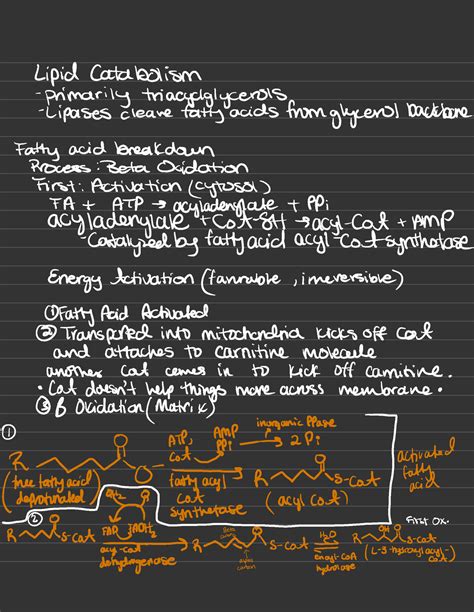 Lipid Catabolism
- primarily triacylglycerols
- Lipases cleave fatty acids from glycerol backbone
Fatty acid breakdown
Process: Beta Oxidation
First: Activation (cytosol)
FA + ATP → acyladenylate + PPi
acyladenylate + CoA-SH → acyl-CoA + AMP
- Catalyzed by fatty acid acyl-CoA synthetase
Energy Activation (favorable, irreversible)
① Fatty Acid Activated
② Transported into mitochondria kicks off CoA
and attaches to carnitine molecule
another CoA comes in to kick off carnitine.
• CoA doesn't help things move across membrane.
③ β Oxidation (Matrix)
①
R
O
O
(free fatty acid
deprotonated)
ATP,
CoA
AMP
PPi
inorganic PPase
2 Pi
fatty acyl
CoA
synthetase
R
O
S-CoA
(acyl CoA)
activated
fatty
acid
②
R
S-CoA
FAD
FADH₂
acyl-CoA
dehydrogenase
R
Beta
carbon
O
S-CoA
H₂O
enoyl-CoA
hydrolase
First Ox.
R
OH
O
S-CoA
(L-3-hydroxyacyl-
CoA)